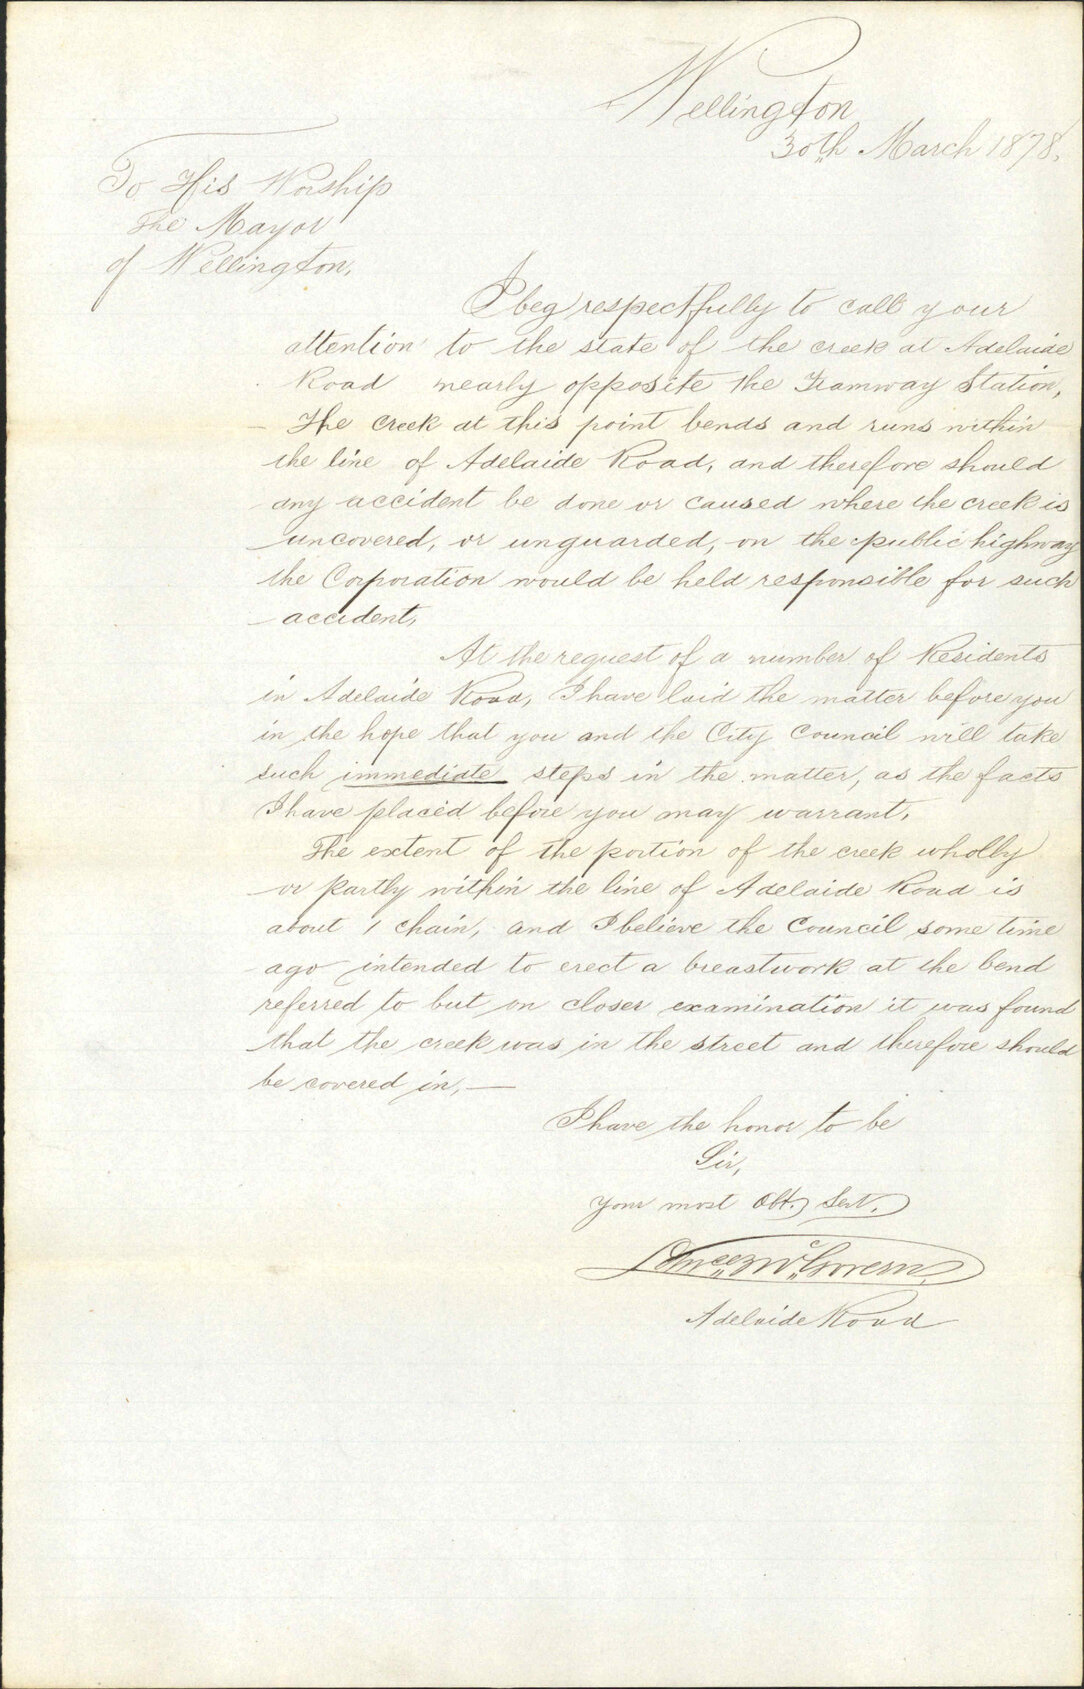 Wellington
30th March 1878.
To His Worship
The Mayor
of Wellington,
I beg respectfully to call your
attention to the state of the creek at Adelaide
Road nearly opposite the Tramway Station,
The creek at this point bends and runs within
the line of Adelaide Road, and therefore should
any accident be done or caused where the creek is
uncovered, or unguarded, on the public highway
the Corporation would be held responsible for such
accident,
At the request of a number of Residents
in Adelaide Road, I have laid the matter before you
in the hope that you and the City Council will take
such immediate steps in the matter, as the facts
I have placed before you may warrant,
The extent of the portion of the creek wholly
or partly within the line of Adelaide Road is
about 1 chain, and I believe the Council some time
ago intended to erect a breastwork at the bend
referred to but on closer examination it was found
that the creek was in the street and therefore should
be covered in, —
I have the honor to be
Sir,
your most Obt. Sert.
McGovern
Adelaide Road